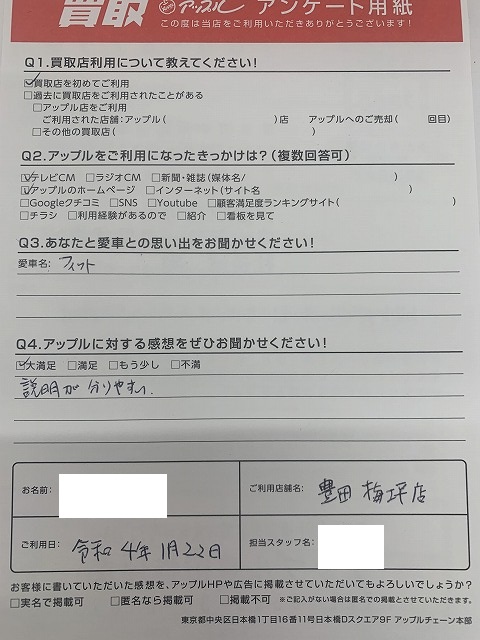 買取 アップル アンケート用紙
この度は当店をご利用いただきありがとうございます!
Q1.買取店利用について教えてください!
☑買取店を初めてご利用
□過去に買取店をご利用されたことがある
□アップル店をご利用
ご利用された店舗:アップル( )店 アップルへのご売却( 回目)
□その他の買取店( )
Q2.アップルをご利用になったきっかけは?(複数回答可)
☑テレビCM □ラジオCM □新聞・雑誌(媒体名/ )
☑アップルのホームページ □インターネット(サイト名 )
□Googleクチコミ □SNS □Youtube □顧客満足度ランキングサイト( )
□チラシ □利用経験があるので □紹介 □看板を見て
Q3.あなたと愛車との思い出をお聞かせください!
愛車名: フィット
Q4.アップルに対する感想をぜひお聞かせください!
☑大満足 □満足 □もう少し □不満
説明が分りやすい.
お名前:
ご利用店舗名: 豊田 梅坪店
ご利用日: 令和 4年 1月22日
担当スタッフ名:
お客様に書いていただいた感想を、アップルHPや広告に掲載させていただいてもよろしいでしょうか?
□実名で掲載可 □匿名なら掲載可 □掲載不可 ※ご記入がない場合は匿名での掲載とさせていただきます。
東京都中央区日本橋1丁目16番11号日本橋Dスクエア9F アップルチェーン本部